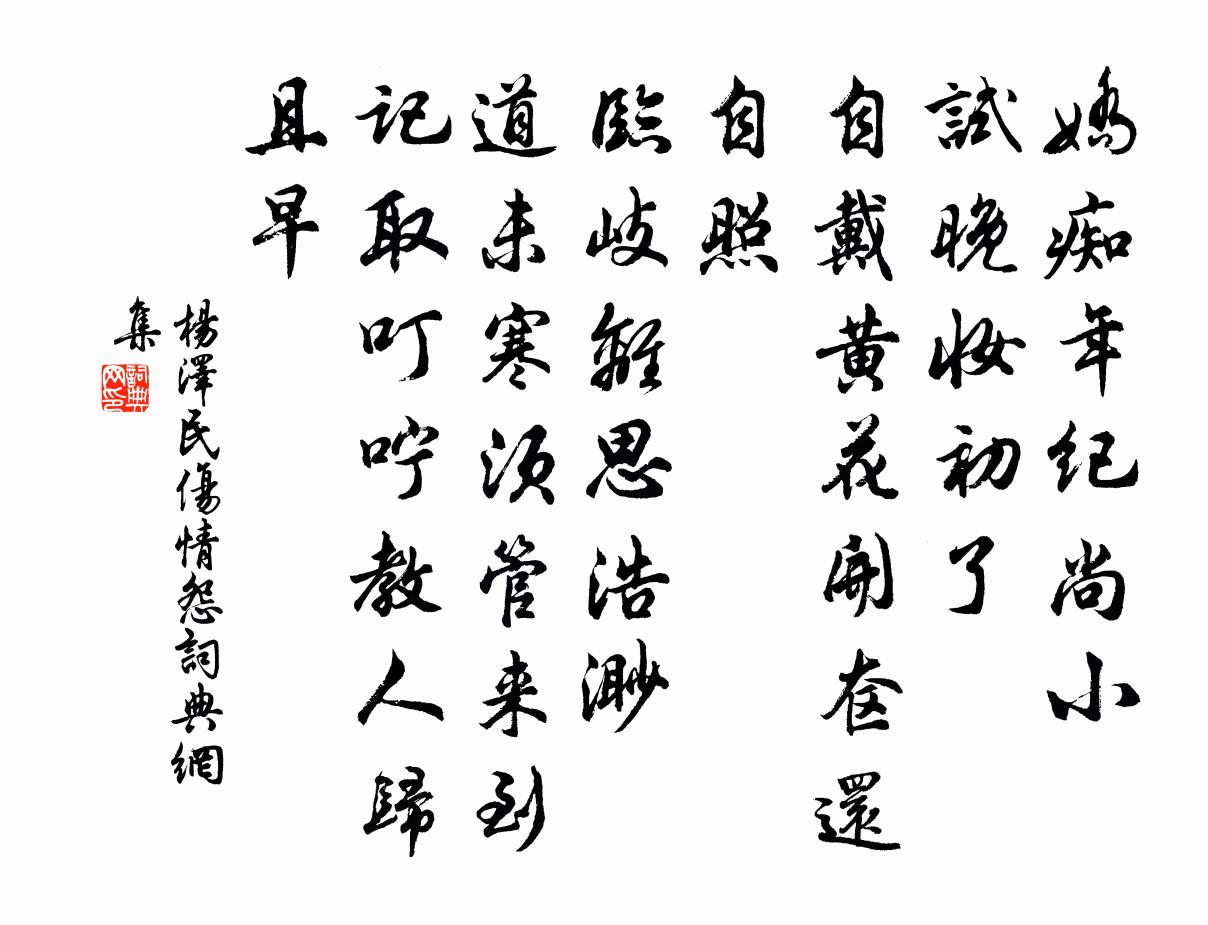 嬌痴年纪尚小
試晚妝初了
自戴黄花開奁還
自照
臨岐離思浩渺
道未寒須管来到
記取叮咛教人歸
且早
楊澤民傷情怨詞典網
集
詞典网印